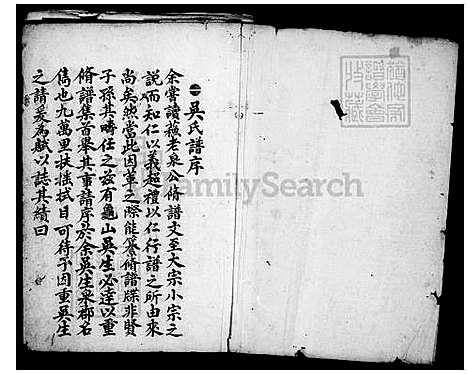 一吳氏譜序
余嘗讀蘓老泉公脩譜文至大宗小宗之
說而知仁以義起禮以仁行譜之所由来
尚矣然當此因革之際能纂脩譜牒非賢
子孫其疇任之兹有龜山吳生必達以重
脩譜集首舉其事請序於余吳生泉郡名
儁也九萬里扶摇拭目可待予因重吳生
之請爰為獻以誌其績曰
FamilySearch